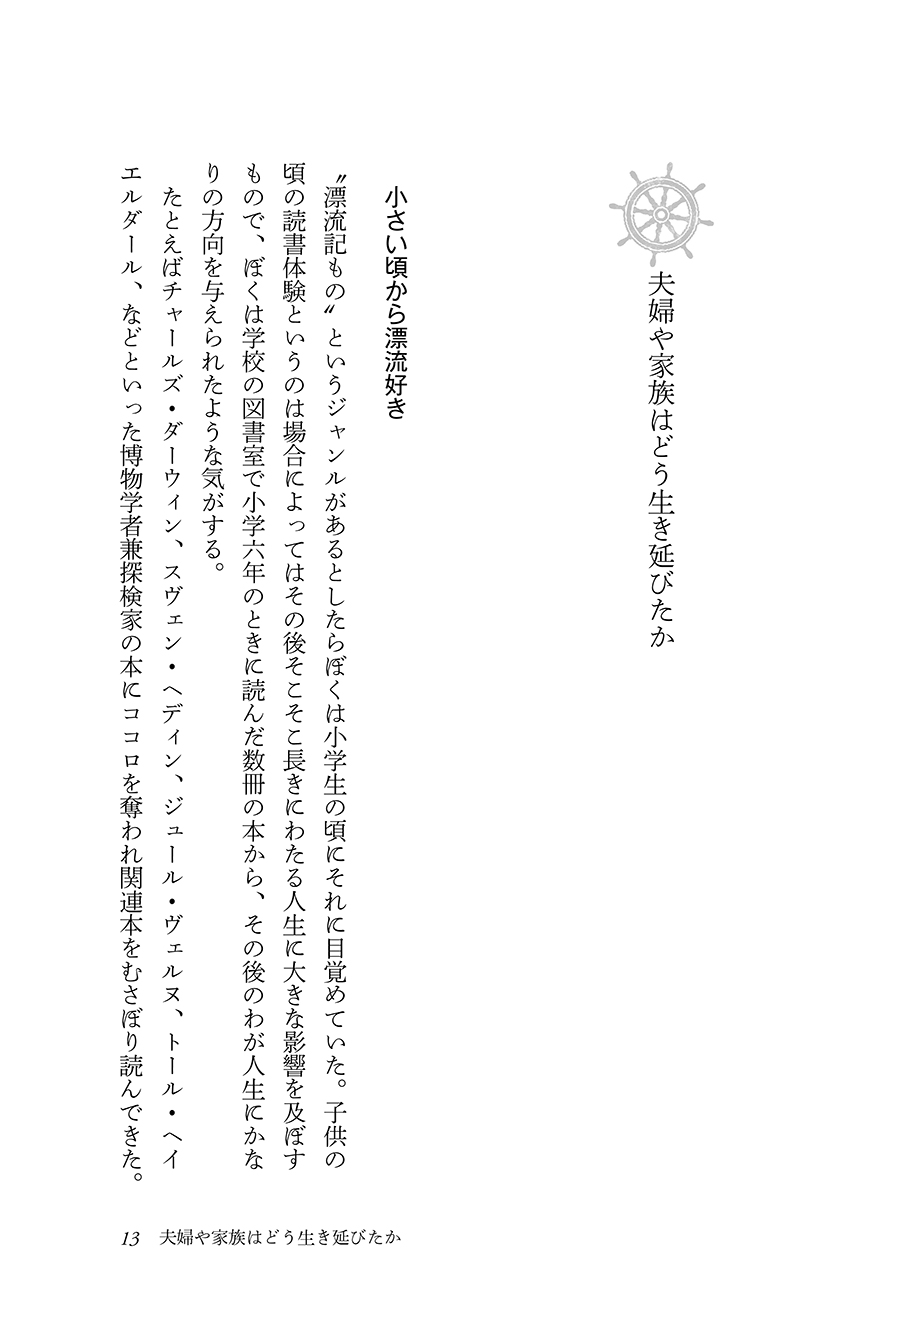 夫婦や家族はどう生き延びたか
小さい頃から漂流好き
〝漂流記もの〟というジャンルがあるとしたらぼくは小学生の頃にそれに目覚めていた。子供の
頃の読書体験というのは場合によってはその後そこそこ長きにわたる人生に大きな影響を及ぼす
もので、ぼくは学校の図書室で小学六年のときに読んだ数冊の本から、その後のわが人生にかな
りの方向を与えられたような気がする。
たとえばチャールズ・ダーウィン、スヴェン・ヘディン、ジュール・ヴェルヌ、トール・ヘイ
エルダール、などといった博物学者兼探検家の本にココロを奪われ関連本をむさぼり読んできた。
13 夫婦や家族はどう生き延びたか